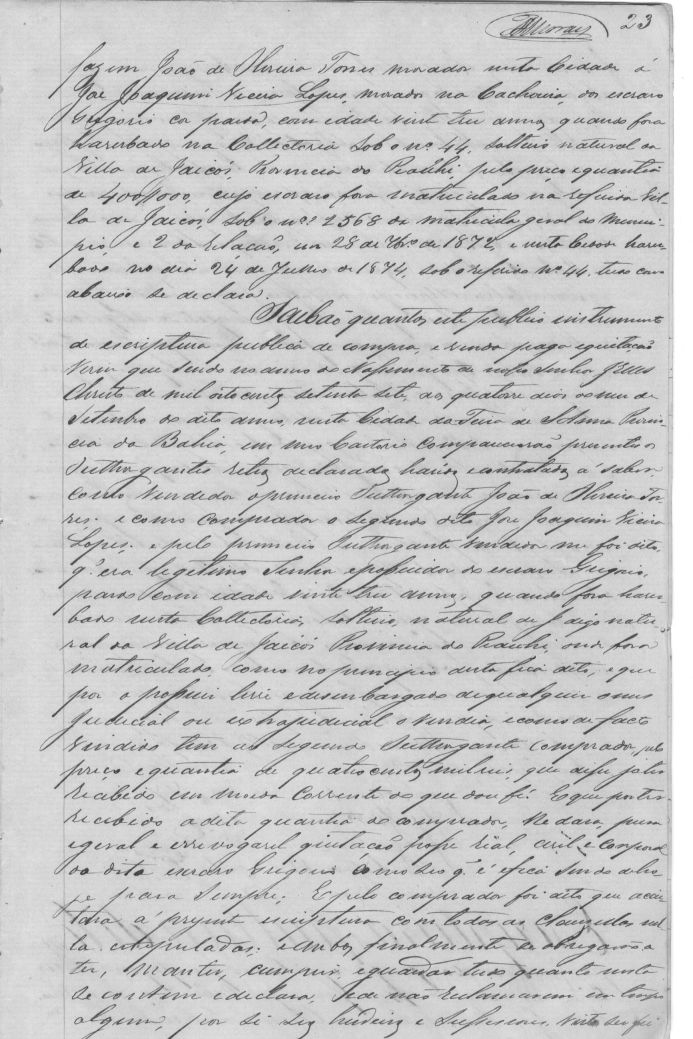 23
fazem João de Oliveira Torres morador nesta Cidade á
José Joaquim Vieira Lopes, morador na Cachoeira, do escravo
Grigorio cor parda, com idade vinte tres annos, quando fora
haverbado na Collectoria sob o nº 44, solteiro natural da
Villa de Jaicós, Provincia do Piauhi, pelo preço e quantia
de 400$000, cujo escravo fora matriculado na referida Vil-
la de Jaicós, sob o nº 2568 da matricula geral do Munici-
pio e 2 da relação, em 28 de de 1872, e nesta Cidade haver-
bado no dia 24 de Julho de 1874, sob o referido nº 44, tudo como
abaixo se declara.
Saibão quantos este publico instrumento
de escriptura publica de compra, e venda paga e quitação
virem que sendo no anno do Nascimento de nosso Senhor Jesus
Christo de mil oito centos setenta sete, aos quatorze dias do mes de
Setembro do dito anno, nesta Cidade da Feira de S. Anna Provin-
cia da Bahia, em meo Cartorio comparecerão presentes os
Outhorgantes declarados, havidos e contratados, á saber
como vendedor o primeiro Outhorgante João de Oliveira Tor-
res; e como comprador o segundo dito José Joaquim Vieira
Lopes; e pelo primeiro Outhorgante vendedor me foi dito,
q' era legitimo Senhor e possuidor do escravo Grigorio,
pardo com idade vinte tres annos, quando fora haver-
bado nesta Collectoria, solteiro, natural de J digo natu-
ral da Villa de Jaicós Provincia do Piauhi, onde fora
matriculado, como no principio desta fica dito, e que
por o possuir livre e desembargado de qualquer onus
Judicial ou extrajudicial o vendia, e como de facto
vendido tem ao segundo Outhorgante comprador, pelo
preço e quantia de quatrocentos mil reis, que disse já ter
recebido em moeda corrente do que dou fé. E que por ter
recebido a dita quantia do comprador, lhe dava, plena
e geral e irrevogavel quitação posse real, civil e corporal
do dito escravo Grigorio como seo q' é e fica sendo de hoje
para sempre. E pelo comprador foi dito que acei-
tava á presente escriptura com todas as clausulas nel-
la estipuladas; e ambos finalmente se obrigarão a
ter, manter, cumprir, e guardar tudo quanto nesta
se contem e declara, e de não reclamarem em tempo
algum, por si seos herdeiros e Successores. Nesta